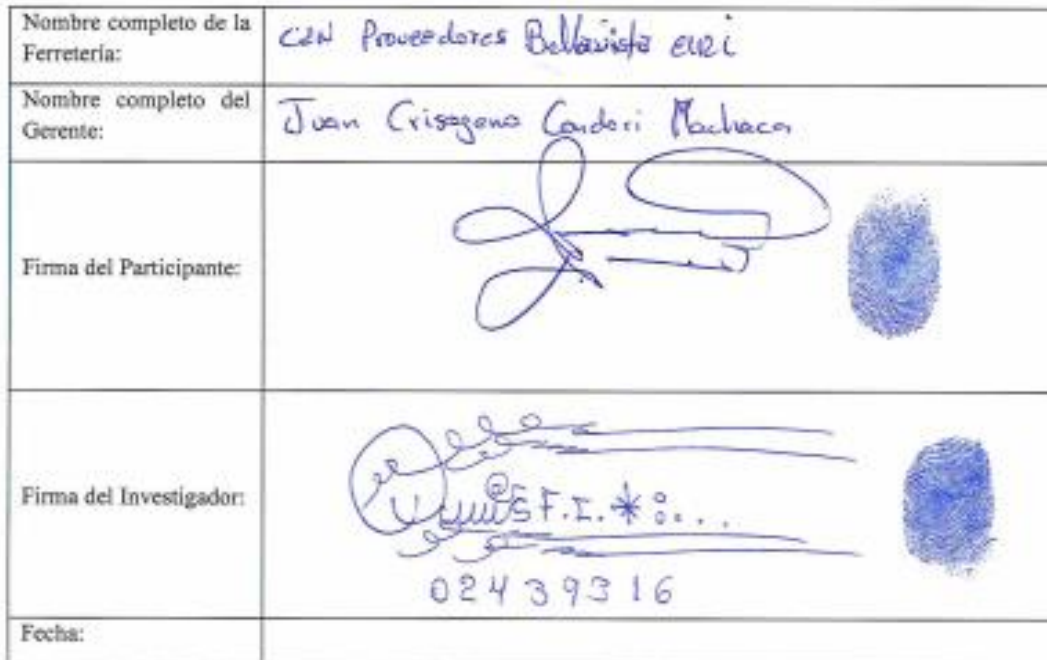 Nombre completo de la
Ferretería:
C&N Proveedores Bellavista EIRL
Nombre completo del
Gerente:
Juan Crisogono Condori Machaca
Firma del Participante:
Firma del Investigador:
F.I.
02439316
Fecha: